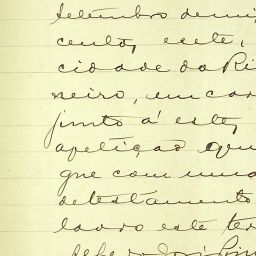 setembro de mi
cento, e sete,
cidade do Ri
neiro, em car
junto a' este,
apetição que
que com uma
de testamento
lavro este ter